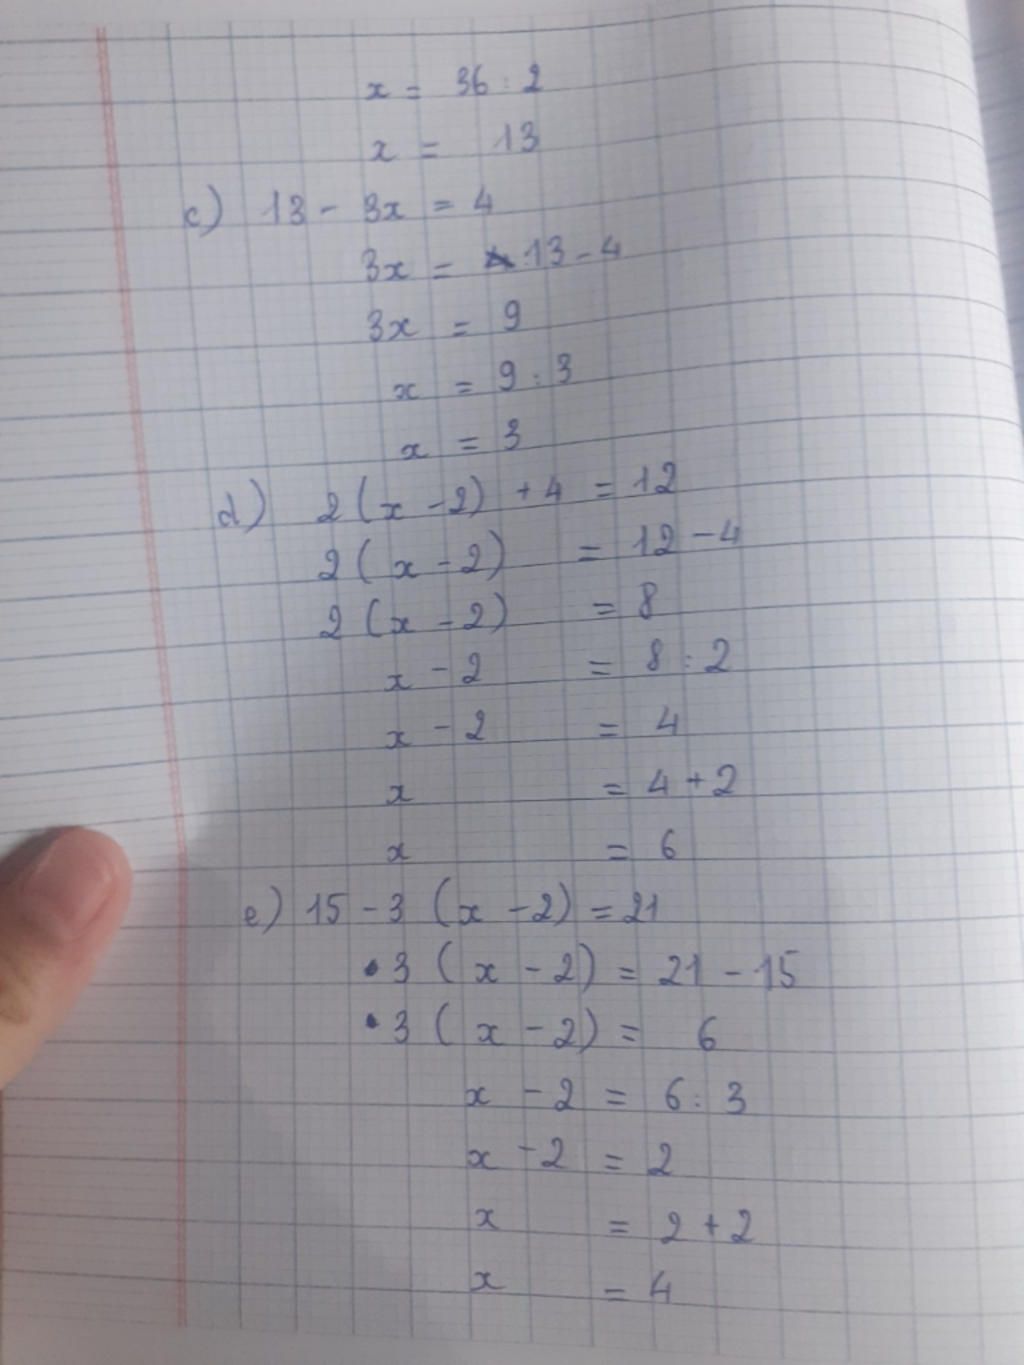 x = 36 : 2
x = 13
c) 13 - 3x = 4
3x = 13 - 4
3x = 9
x = 9 : 3
x = 3
d) 2(x - 2) + 4 = 12
2(x - 2) = 12 - 4
2(x - 2) = 8
x - 2 = 8 : 2
x - 2 = 4
x = 4 + 2
x = 6
e) 15 - 3(x - 2) = 21
3(x - 2) = 21 - 15
3(x - 2) = 6
x - 2 = 6 : 3
x - 2 = 2
x = 2 + 2
x = 4